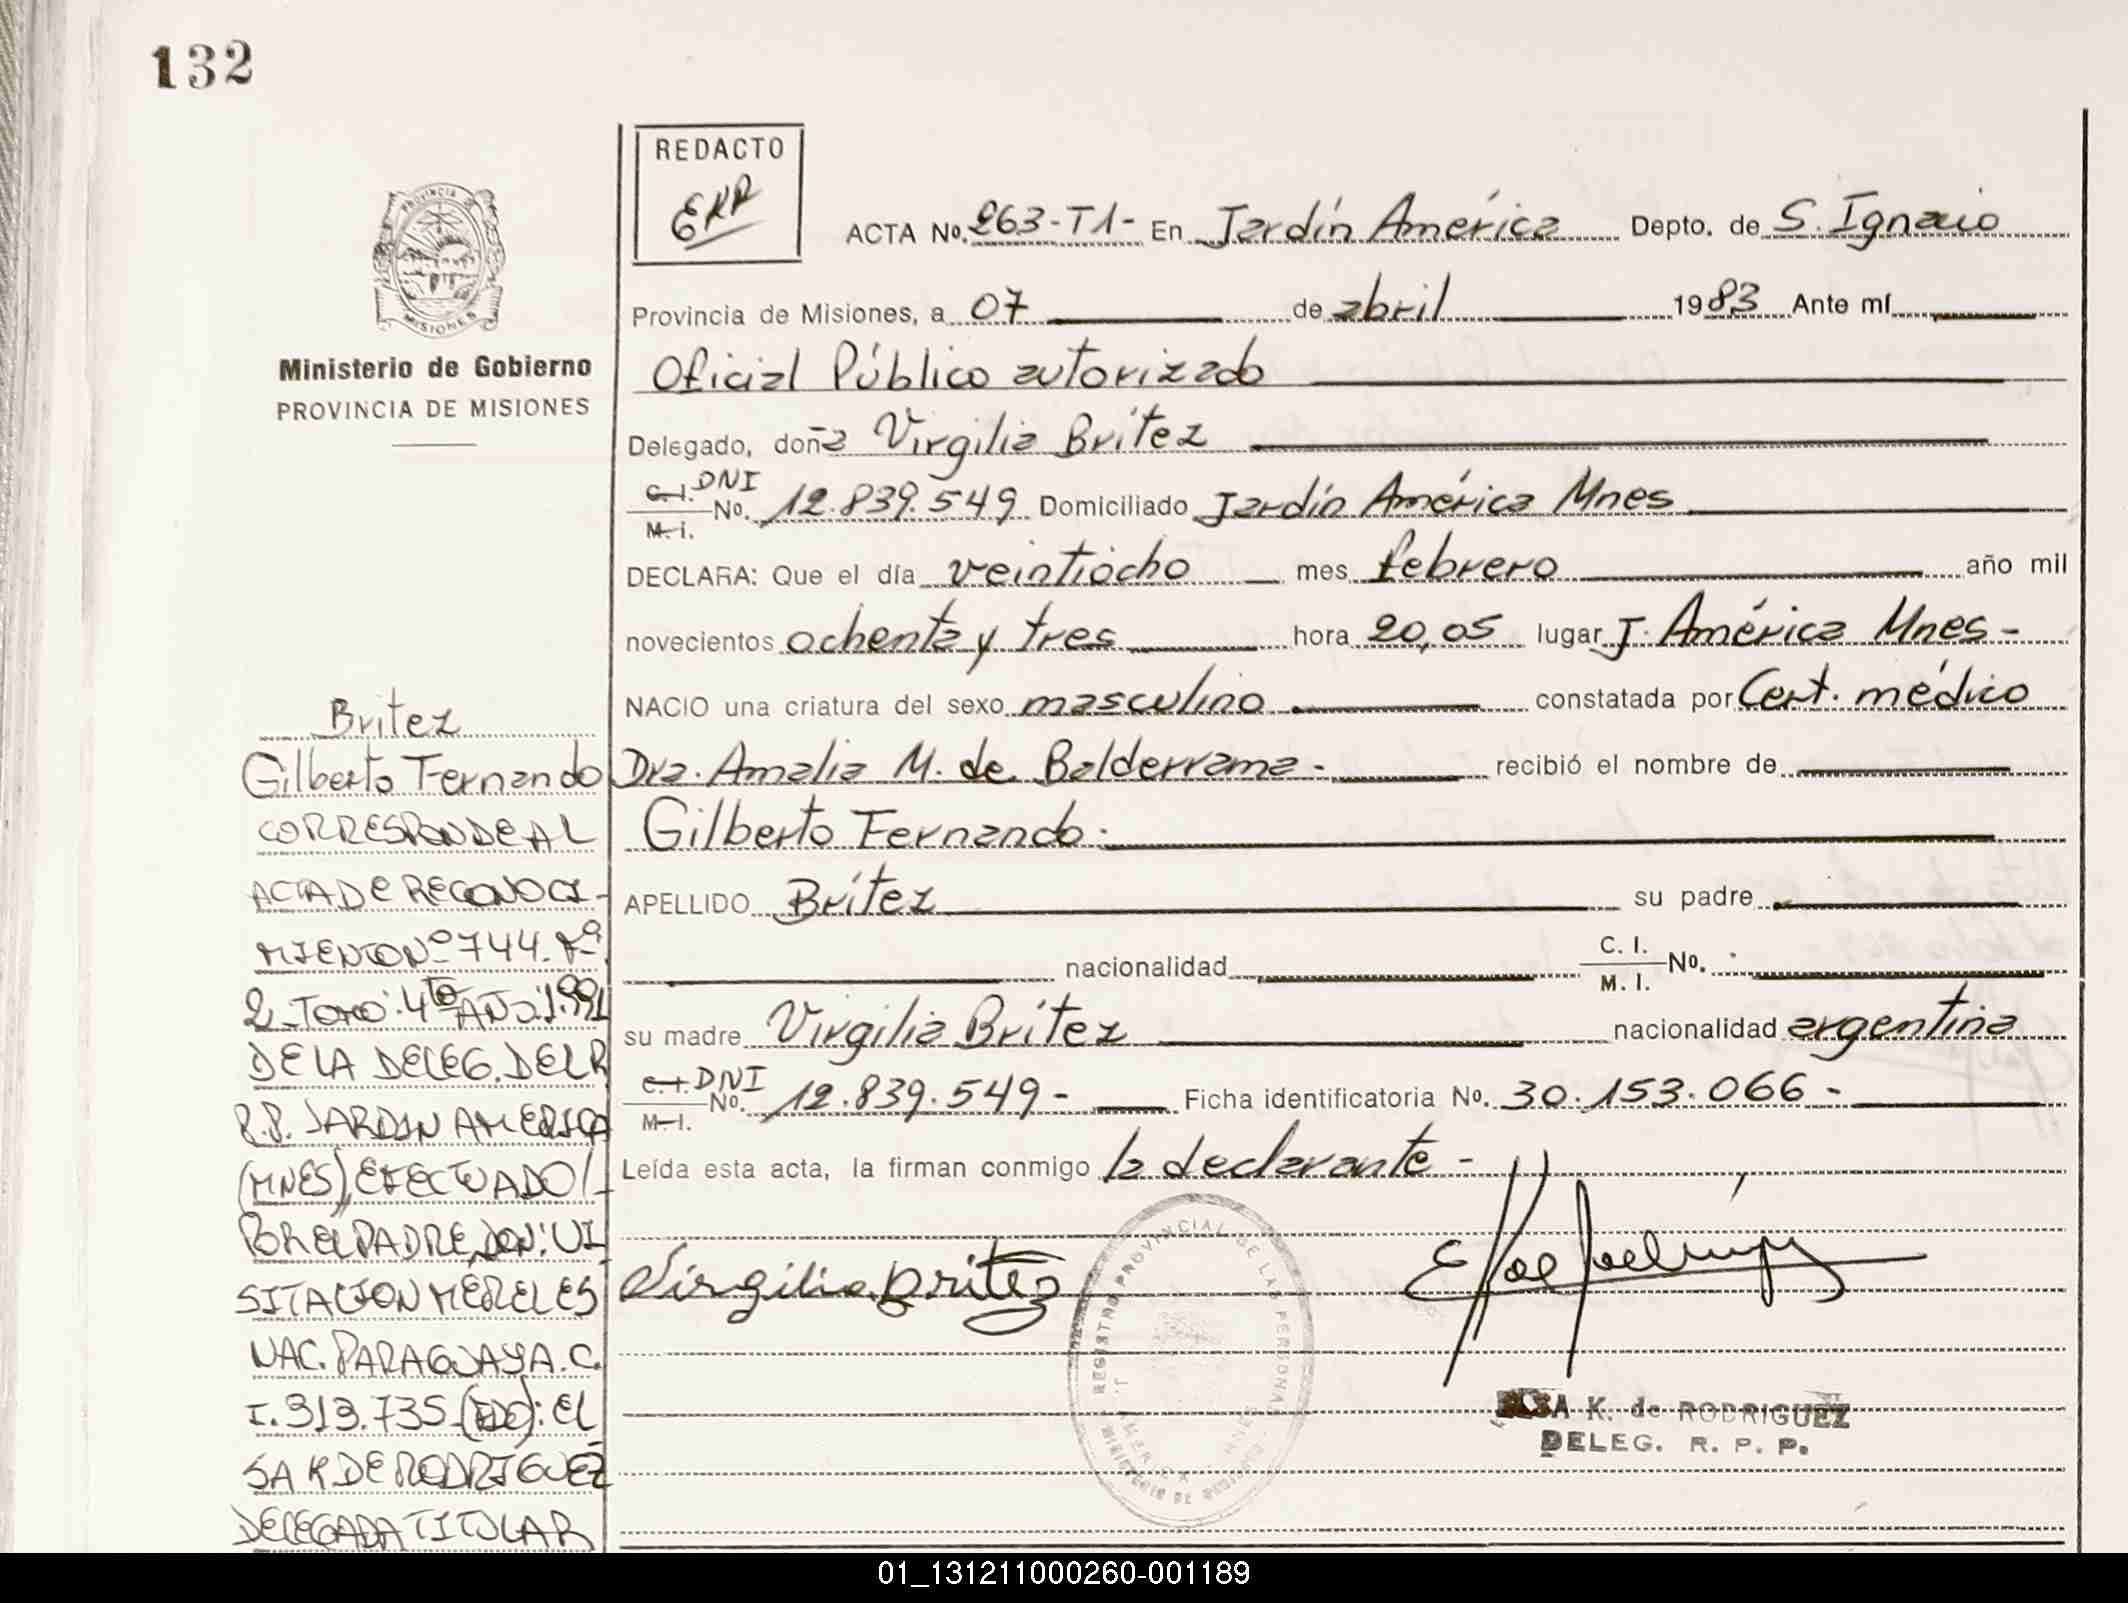 132
REDACTO
EKR
ACTA No. 263-T1- En Jardín América Depto. de S. Ignacio
PROVINCIA
MISIONES
Provincia de Misiones, a 07 de abril 1983 Ante mí
Ministerio de Gobierno
PROVINCIA DE MISIONES
Oficial Público autorizado
Delegado, doña Virgilia Brítez
C. I. DNI
M. I. No. 12.839.549 Domiciliado Jardín América Mnes
DECLARA: Que el día veintiocho mes febrero año mil
novecientos ochenta y tres hora 20,05 lugar J. América Mnes-
NACIO una criatura del sexo masculino constatada por Cert. médico
Dra. Amalia M. de Balderrama- recibió el nombre de
Gilberto Fernando.
APELLIDO Brítez su padre
nacionalidad C. I.
M. I. No.
su madre Virgilia Brítez nacionalidad argentina
C. I. DNI
M. I. No. 12.839.549- Ficha identificatoria No. 30.153.066-
Leída esta acta, la firman conmigo la declarante-
Virgilia Britez
REGISTRO PROVINCIAL DE LAS PERSONAS
MINISTERIO DE
ELSA K. de RODRIGUEZ
DELEG. R. P. P.
Brítez
Gilberto Fernando
CORRESPONDE AL
ACTA DE RECONOCI-
MIENTO Nº 744. Fº
2 TOMO: 4to AÑO: 1.991
DE LA DELEG. DEL R
P.P. JARDIN AMERICA
(MNES), EFECTUADO/-
POR EL PADRE, DON: VI
SITACION MERELES
NAC. PARAGUAYA. C.
I. 313.735. (FDO): EL
SA K DE RODRIGUEZ
DELEGADA TITULAR
01_131211000260-001189